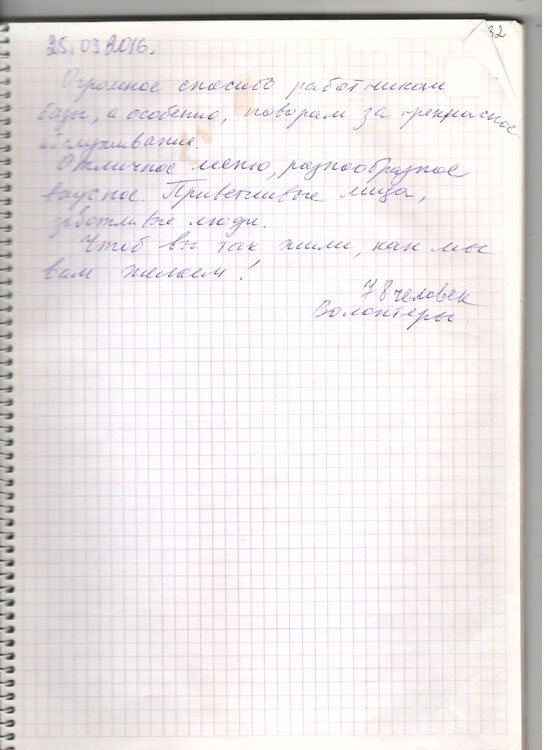 32
25.09.2016.
Огромное спасибо работникам
базы, а особенно, поворам за прекрасное
обслуживание.
Отличное меню, разнообразное
вкусное. Приветливые лица,
заботливые люди.
Чтоб вы так жили, как мы
вам желаем!
78 человек
Волонтеры.